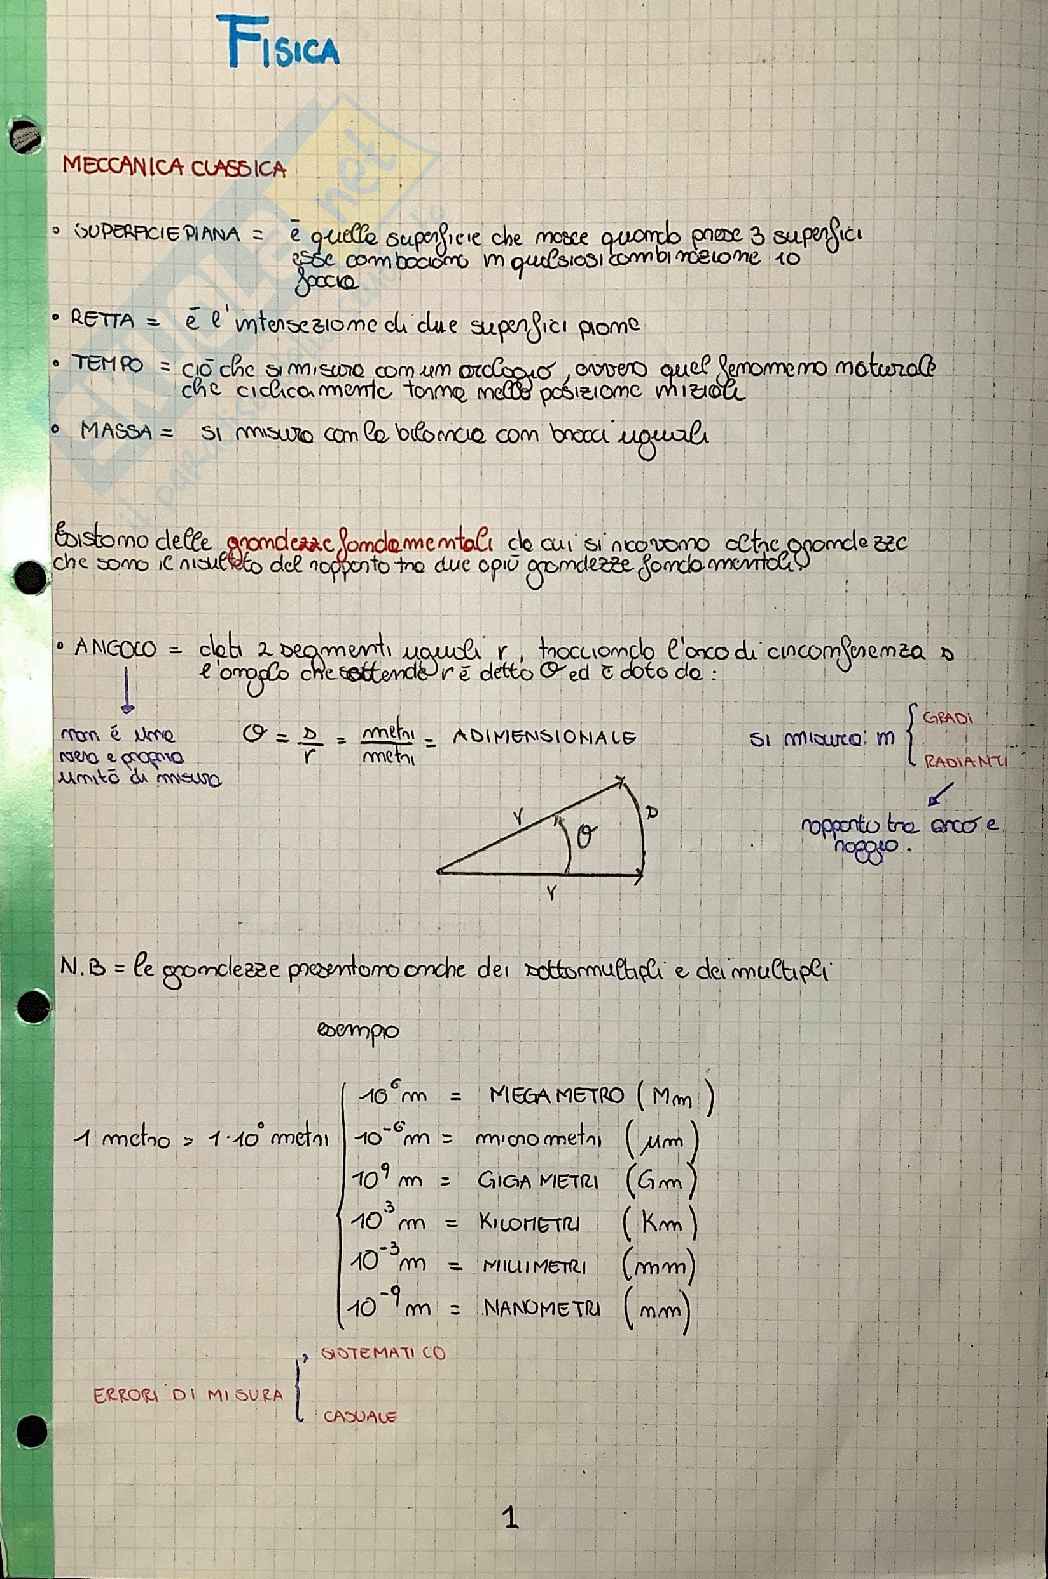 FISICA
MECCANICA CLASSICA
• SUPERFICIE PIANA = è quella superficie che nasce quando prese 3 superfici
esse combaciano in qualsiasi combinazione lo
faccia
• RETTA = è l'intersezione di due superfici piane
• TEMPO = ciò che si misura con un orologio, ovvero quel fenomeno naturale
che ciclicamente torna nelle posizione iniziali
• MASSA = si misura con la bilancia con bracci uguali
Esistono delle grandezze fondamentali da cui si ricavano altre grandezze
che sono il risultato del rapporto tra due o più grandezze fondamentali.
• ANGOLO = dati 2 segmenti uguali r, tracciando l'arco di circonferenza s
l'angolo che sottende r è detto θ ed è dato da:
non è una
vera e propria
unità di misura
θ = s/r = metri/metri = ADIMENSIONALE
si misura in
GRADI
RADIANTI
rapporto tra arco e
raggio.
r
θ
s
r
N.B = le grandezze presentano anche dei sottomultipli e dei multipli
esempio
1 metro = 1·10⁰ metri
10⁶ m = MEGAMETRO (Mm)
10⁻⁶ m = micrometri (μm)
10⁹ m = GIGAMETRI (Gm)
10³ m = KILOMETRI (Km)
10⁻³ m = MILLIMETRI (mm)
10⁻⁹ m = NANOMETRI (nm)
ERRORI DI MISURA
SISTEMATICO
CASUALE
1